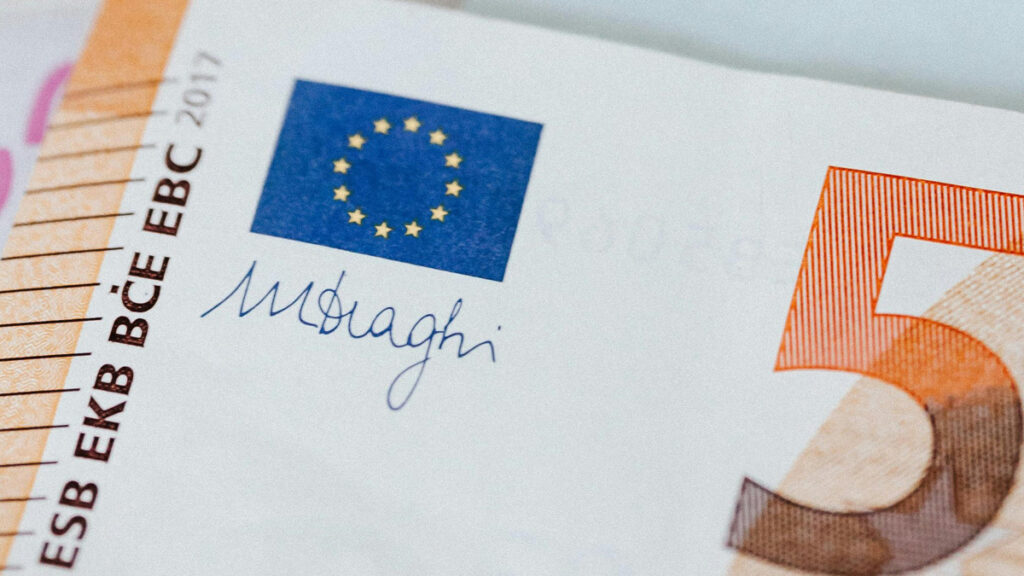 ESB EKB BĊE EBC 2017
MDraghi
5